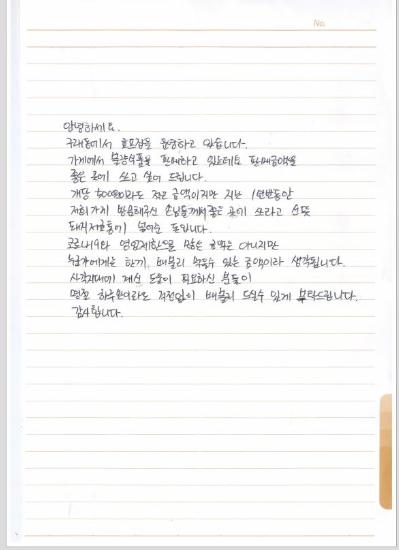 No.
안녕하세요.
구래동에서 호프집을 운영하고 있습니다.
가게에서 불량식품을 판매하고 있는데요 판매금액을
좋은 곳에 쓰고 싶어 드립니다.
개당 500원이라는 작은 금액이지만 지난 1년반동안
저희가게 방문해주신 손님들께서 좋은 곳에 쓰라고 선뜻
돼지저금통에 넣어준 돈입니다.
코로나19와 영업제한으로 많은 금액은 아니지만
누군가에게는 한끼 배불리 먹을수 있는 금액이라 생각됩니다.
사각지대에 계신 도움이 필요하신 분들이
명절 하루만이라도 걱정없이 배불리 드실수 있게 부탁드립니다.
감사합니다.